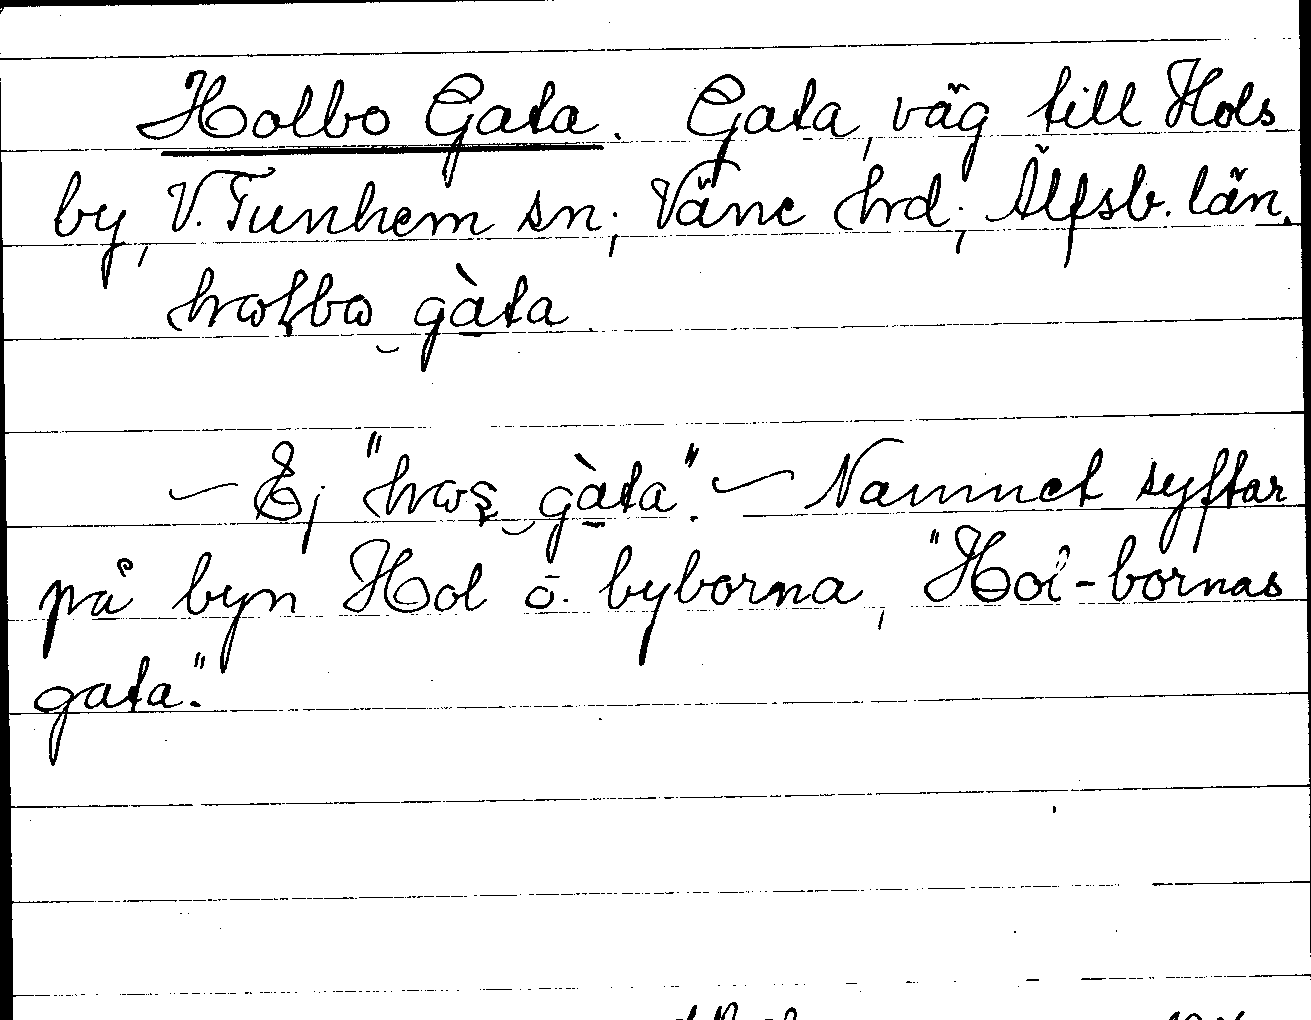 Holbo Gata. Gata, väg till Hols
by, V. Tunhem sn; Väne hrd; Älfsb. län.
gàta
— Ej " gàta". — Namnet syftar
på byn Hol o. byborna, "Hol-bornas
gata."